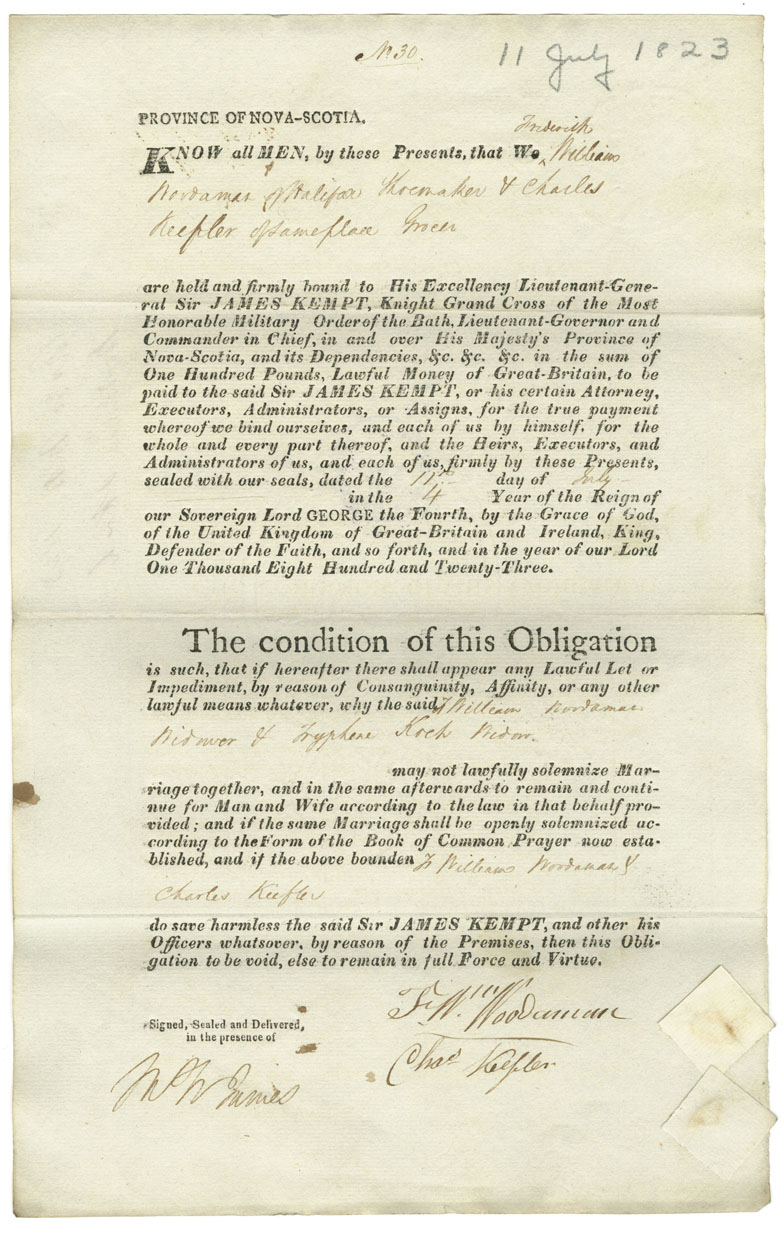 No 30.
11 July 1823
PROVINCE OF NOVA-SCOTIA.
Frederick
KNOW all MEN, by these Presents, that We William
Wordaman of Halifax Shoemaker & Charles
Keefler of same place Grocer
are held and firmly bound to His Excellency Lieutenant-Gene-
ral Sir JAMES KEMPT, Knight Grand Cross of the Most
Honorable Military Order of the Bath, Lieutenant-Governor and
Commander in Chief, in and over His Majesty's Province of
Nova-Scotia, and its Dependencies, &c. &c. &c. in the sum of
One Hundred Pounds, Lawful Money of Great-Britain, to be
paid to the said Sir JAMES KEMPT, or his certain Attorney,
Executors, Administrators, or Assigns, for the true payment
whereof we bind ourselves, and each of us by himself, for the
whole and every part thereof, and the Heirs, Executors, and
Administrators of us, and each of us, firmly by these Presents,
sealed with our seals, dated the 11th day of July
in the 4 Year of the Reign of
our Sovereign Lord GEORGE the Fourth, by the Grace of God,
of the United Kingdom of Great-Britain and Ireland, King,
Defender of the Faith, and so forth, and in the year of our Lord
One Thousand Eight Hundred and Twenty-Three.
The condition of this Obligation
is such, that if hereafter there shall appear any Lawful Let or
Impediment, by reason of Consanguinity, Affinity, or any other
lawful means whatever, why the said F William Wordaman
Widower & Tryphene Koch Widow.
may not lawfully solemnize Mar-
riage together, and in the same afterwards to remain and conti-
nue for Man and Wife according to the law in that behalf pro-
vided; and if the same Marriage shall be openly solemnized ac-
cording to the Form of the Book of Common Prayer now esta-
blished, and if the above bounden F William Wordaman &
Charles Keefler
do save harmless the said Sir JAMES KEMPT, and other his
Officers whatsover, by reason of the Premises, then this Obli-
gation to be void, else to remain in full Force and Virtue.
Signed, Sealed and Delivered,
in the presence of
Fr Wm Woodaman
Chas Kefsler
James